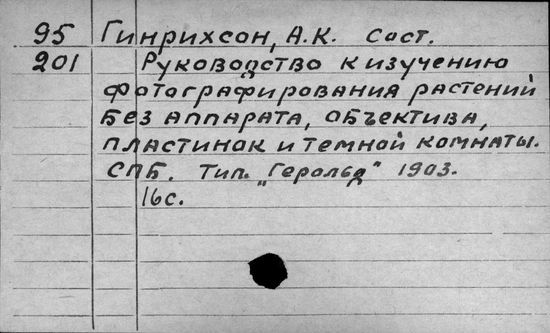 95 Гинрихсон, А.К. Сост.
201 Руководство к изучению
фотографирования растений
без аппарата, объектива,
пластинок и темной комнаты.
СПБ. Тип. „Герольд" 1903.
16с.